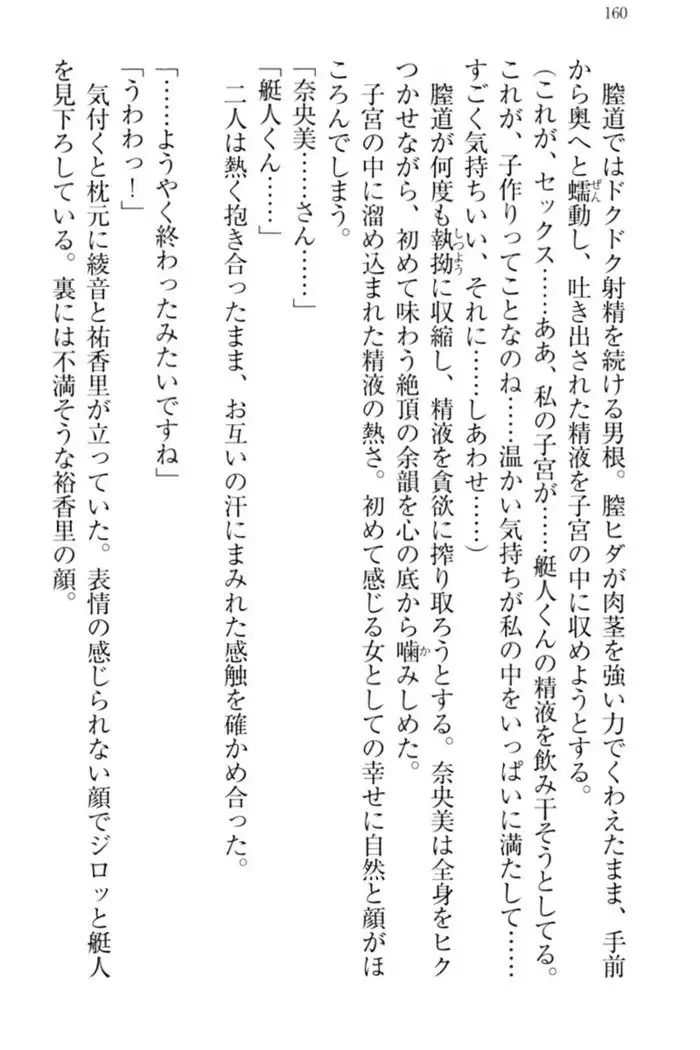 160
膣道ではドクドク射精を続ける男根。膣ヒダが肉茎を強い力でくわえたまま、手前
から奥へと蠕動し、吐き出された精液を子宮の中に収めようとする。
(これが、セックス……ああ、私の子宮が……艇人くんの精液を飲み干そうとしてる。
これが、子作りってことなのね……温かい気持ちが私の中をいっぱいに満たして……
すごく気持ちいい、それに……しあわせ……)
膣道が何度も執拗に収縮し、精液を貪欲に搾り取ろうとする。奈央美は全身をヒク
つかせながら、初めて味わう絶頂の余韻を心の底から噛みしめた。
子宮の中に溜め込まれた精液の熱さ。初めて感じる女としての幸せに自然と顔がほ
ころんでしまう。
「奈央美……さん……」
「艇人くん……」
二人は熱く抱き合ったまま、お互いの汗にまみれた感触を確かめ合った。
「……ようやく終わったみたいですね」
「うわわっ！」
気付くと枕元に綾音と祐香里が立っていた。表情の感じられない顔でジロッと艇人
を見下ろしている。裏には不満そうな裕香里の顔。